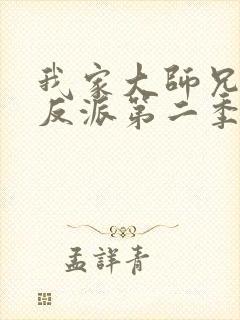 我家大師兄
反派第二季
孟詳青